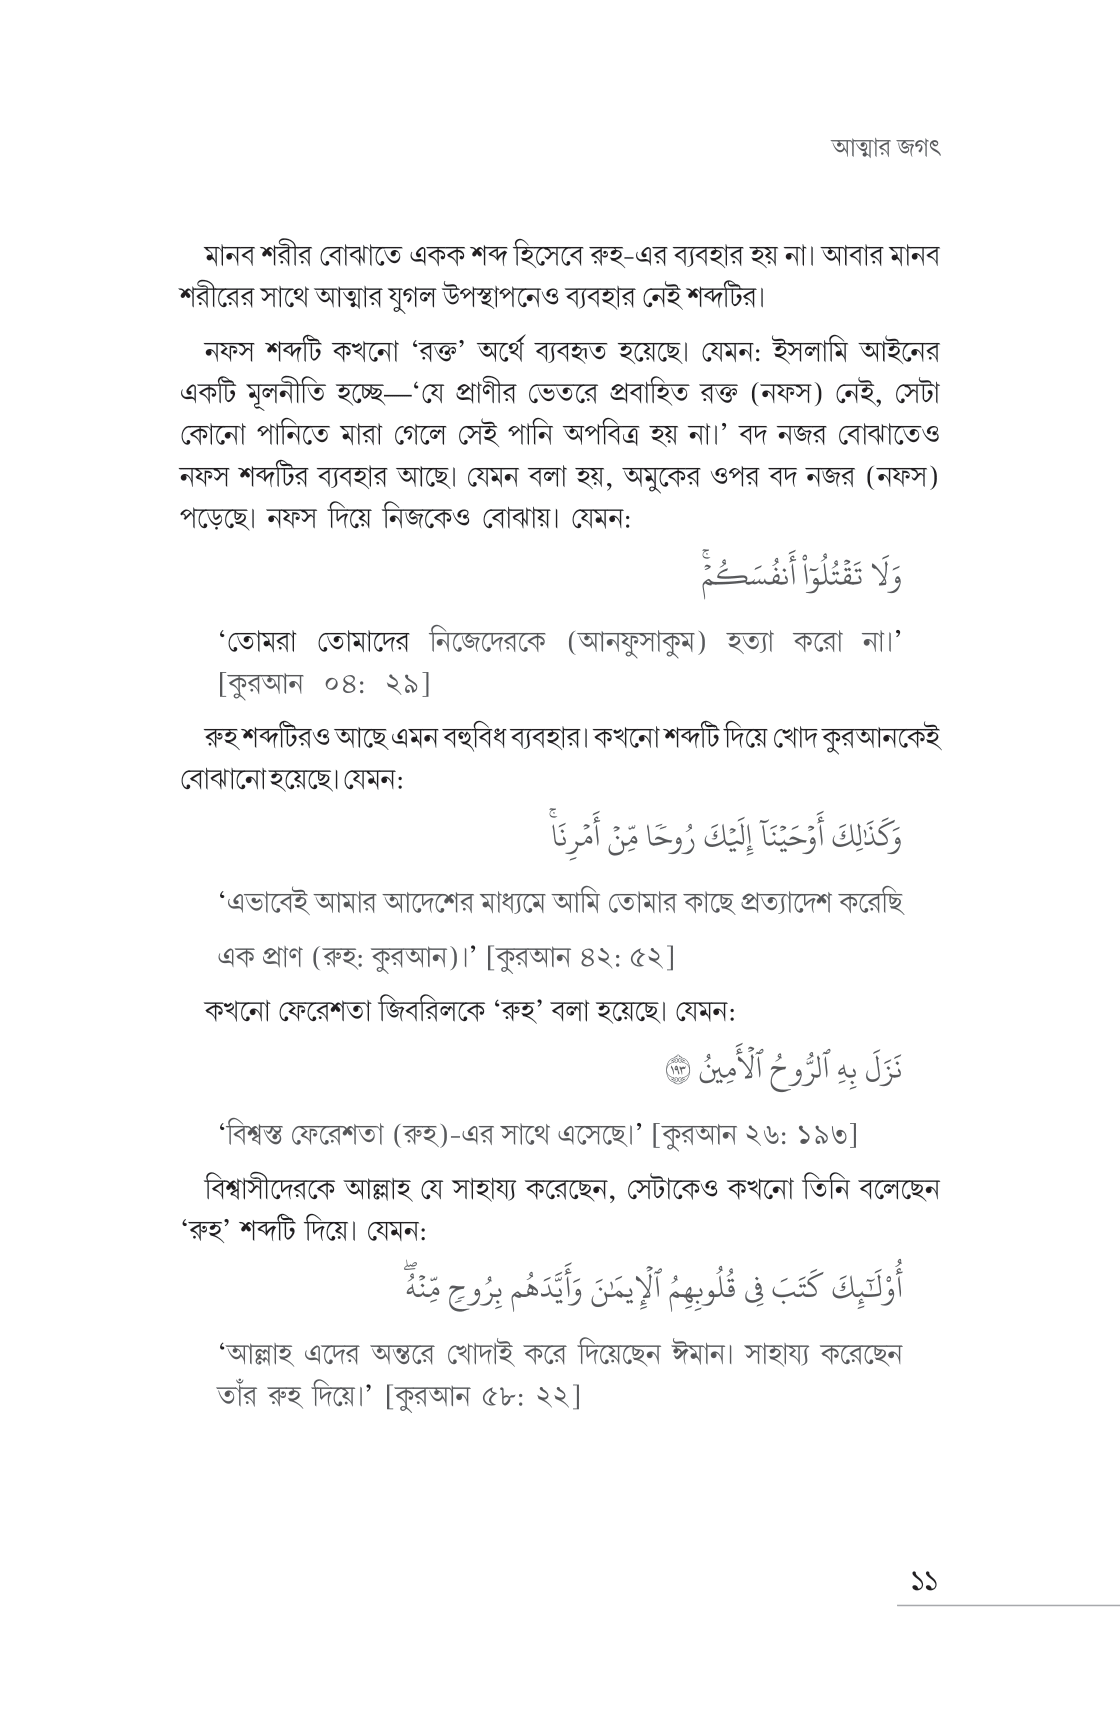 আত্মার জগৎ
মানব শরীর বোঝাতে একক শব্দ হিসেবে রুহ-এর ব্যবহার হয় না। আবার মানব
শরীরের সাথে আত্মার যুগল উপস্থাপনেও ব্যবহার নেই শব্দটির।
নফস শব্দটি কখনো ‘রক্ত’ অর্থে ব্যবহৃত হয়েছে। যেমন: ইসলামি আইনের
একটি মূলনীতি হচ্ছে—‘যে প্রাণীর ভেতরে প্রবাহিত রক্ত (নফস) নেই, সেটা
কোনো পানিতে মারা গেলে সেই পানি অপবিত্র হয় না।’ বদ নজর বোঝাতেও
নফস শব্দটির ব্যবহার আছে। যেমন বলা হয়, অমুকের ওপর বদ নজর (নফস)
পড়েছে। নফস দিয়ে নিজকেও বোঝায়। যেমন:
وَلَا تَقۡتُلُوٓاْ أَنفُسَكُمۡۚ
‘তোমরা তোমাদের নিজেদেরকে (আনফুসাকুম) হত্যা করো না।’
[কুরআন ০৪: ২৯]
রুহ শব্দটিরও আছে এমন বহুবিধ ব্যবহার। কখনো শব্দটি দিয়ে খোদ কুরআনকেই
বোঝানো হয়েছে। যেমন:
وَكَذَٰلِكَ أَوۡحَيۡنَآ إِلَيۡكَ رُوحٗا مِّنۡ أَمۡرِنَاۚ
‘এভাবেই আমার আদেশের মাধ্যমে আমি তোমার কাছে প্রত্যাদেশ করেছি
এক প্রাণ (রুহ: কুরআন)।’ [কুরআন ৪২: ৫২]
কখনো ফেরেশতা জিবরিলকে ‘রুহ’ বলা হয়েছে। যেমন:
نَزَلَ بِهِ ٱلرُّوحُ ٱلۡأَمِينُ ١٩٣
‘বিশ্বস্ত ফেরেশতা (রুহ)-এর সাথে এসেছে।’ [কুরআন ২৬: ১৯৩]
বিশ্বাসীদেরকে আল্লাহ যে সাহায্য করেছেন, সেটাকেও কখনো তিনি বলেছেন
‘রুহ’ শব্দটি দিয়ে। যেমন:
أُوْلَٰٓئِكَ كَتَبَ فِي قُلُوبِهِمُ ٱلۡإِيمَٰنَ وَأَيَّدَهُم بِرُوحٖ مِّنۡهُۖ
‘আল্লাহ এদের অন্তরে খোদাই করে দিয়েছেন ঈমান। সাহায্য করেছেন
তাঁর রুহ দিয়ে।’ [কুরআন ৫৮: ২২]
১১